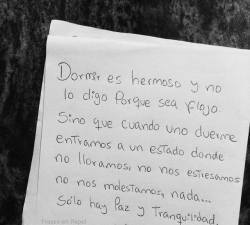 Dormir es hermoso y no
lo digo porque sea flojo.
Sino que cuando uno duerme
entramos a un estado donde
no lloramos, no nos estresamos
no nos molestamos, nada...
Sólo hay Paz y Tranquilidad.
Frases en Papel